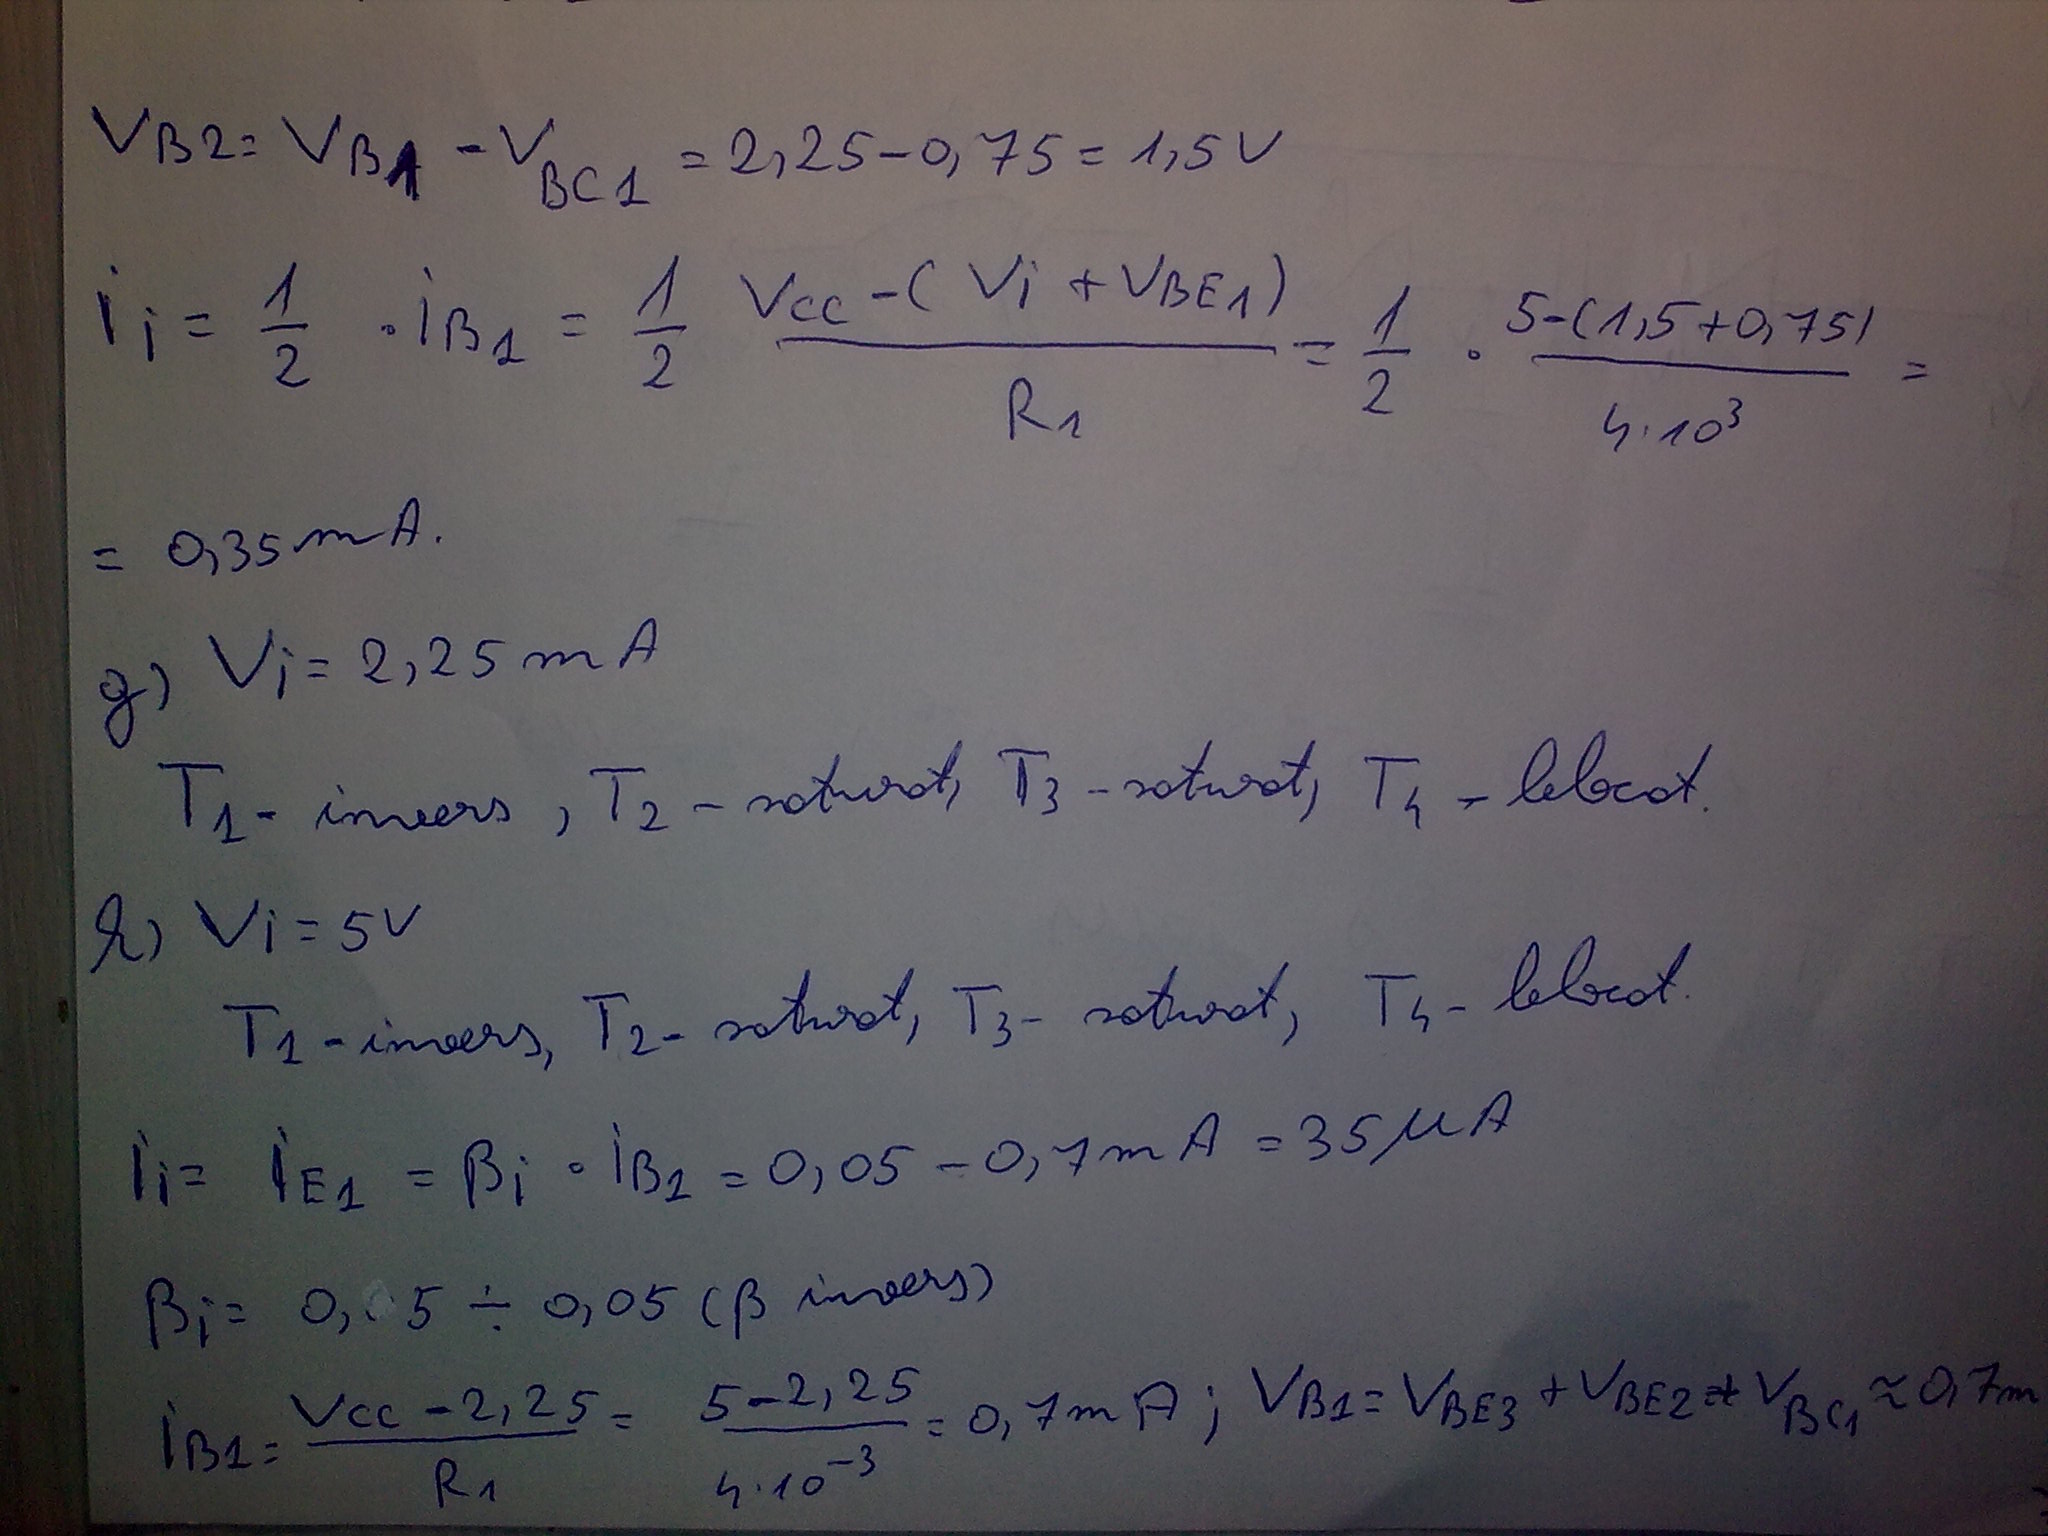 VB2 = VB1 - VBC1 = 2,25 - 0,75 = 1,5 V
ii = 1/2 · iB1 = 1/2 (Vcc - (Vi + VBE1))/R1 = 1/2 · (5-(1,5+0,75))/(4·10³) =
= 0,35 mA.
g) Vi = 2,25 mA
T1 - invers, T2 - saturat, T3 - saturat, T4 - blocat.
h) Vi = 5V
T1 - invers, T2 - saturat, T3 - saturat, T4 - blocat.
ii = iE1 = βi · iB1 = 0,05 - 0,7 mA = 35 μA
βi = 0, 5 ÷ 0,05 (β invers)
iB1 = (Vcc - 2,25)/R1 = (5 - 2,25)/(4·10⁻³) = 0,7 mA ; VB1 = VBE3 + VBE2 + VBC1 ≈ 0,7m